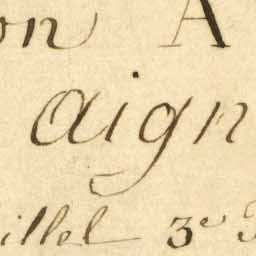 on A
aign
illel 3e